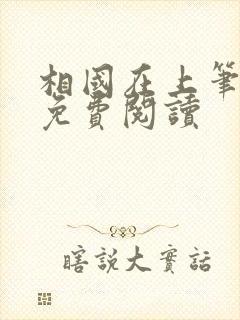 相國在上筆
免費閱讀
瞎說大實話